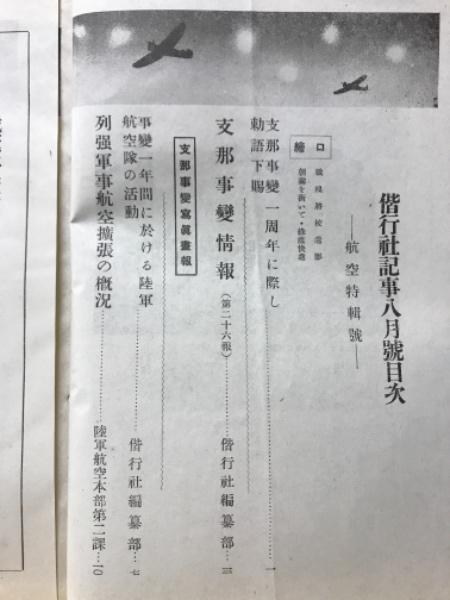 偕行社記事八月號目次
──航空特輯號──
口繪
戰歿將校遺影
朝霧を衝いて・
支那事變一周年に際し
勅語下賜……一
支那事變情報(第二十六報)……偕行社編纂部…三
支那事變寫眞畫報
事變一年間に於ける陸軍
航空隊の活動……偕行社編纂部…七
列强軍事航空擴張の槪況……陸軍航空本部第二課…一〇